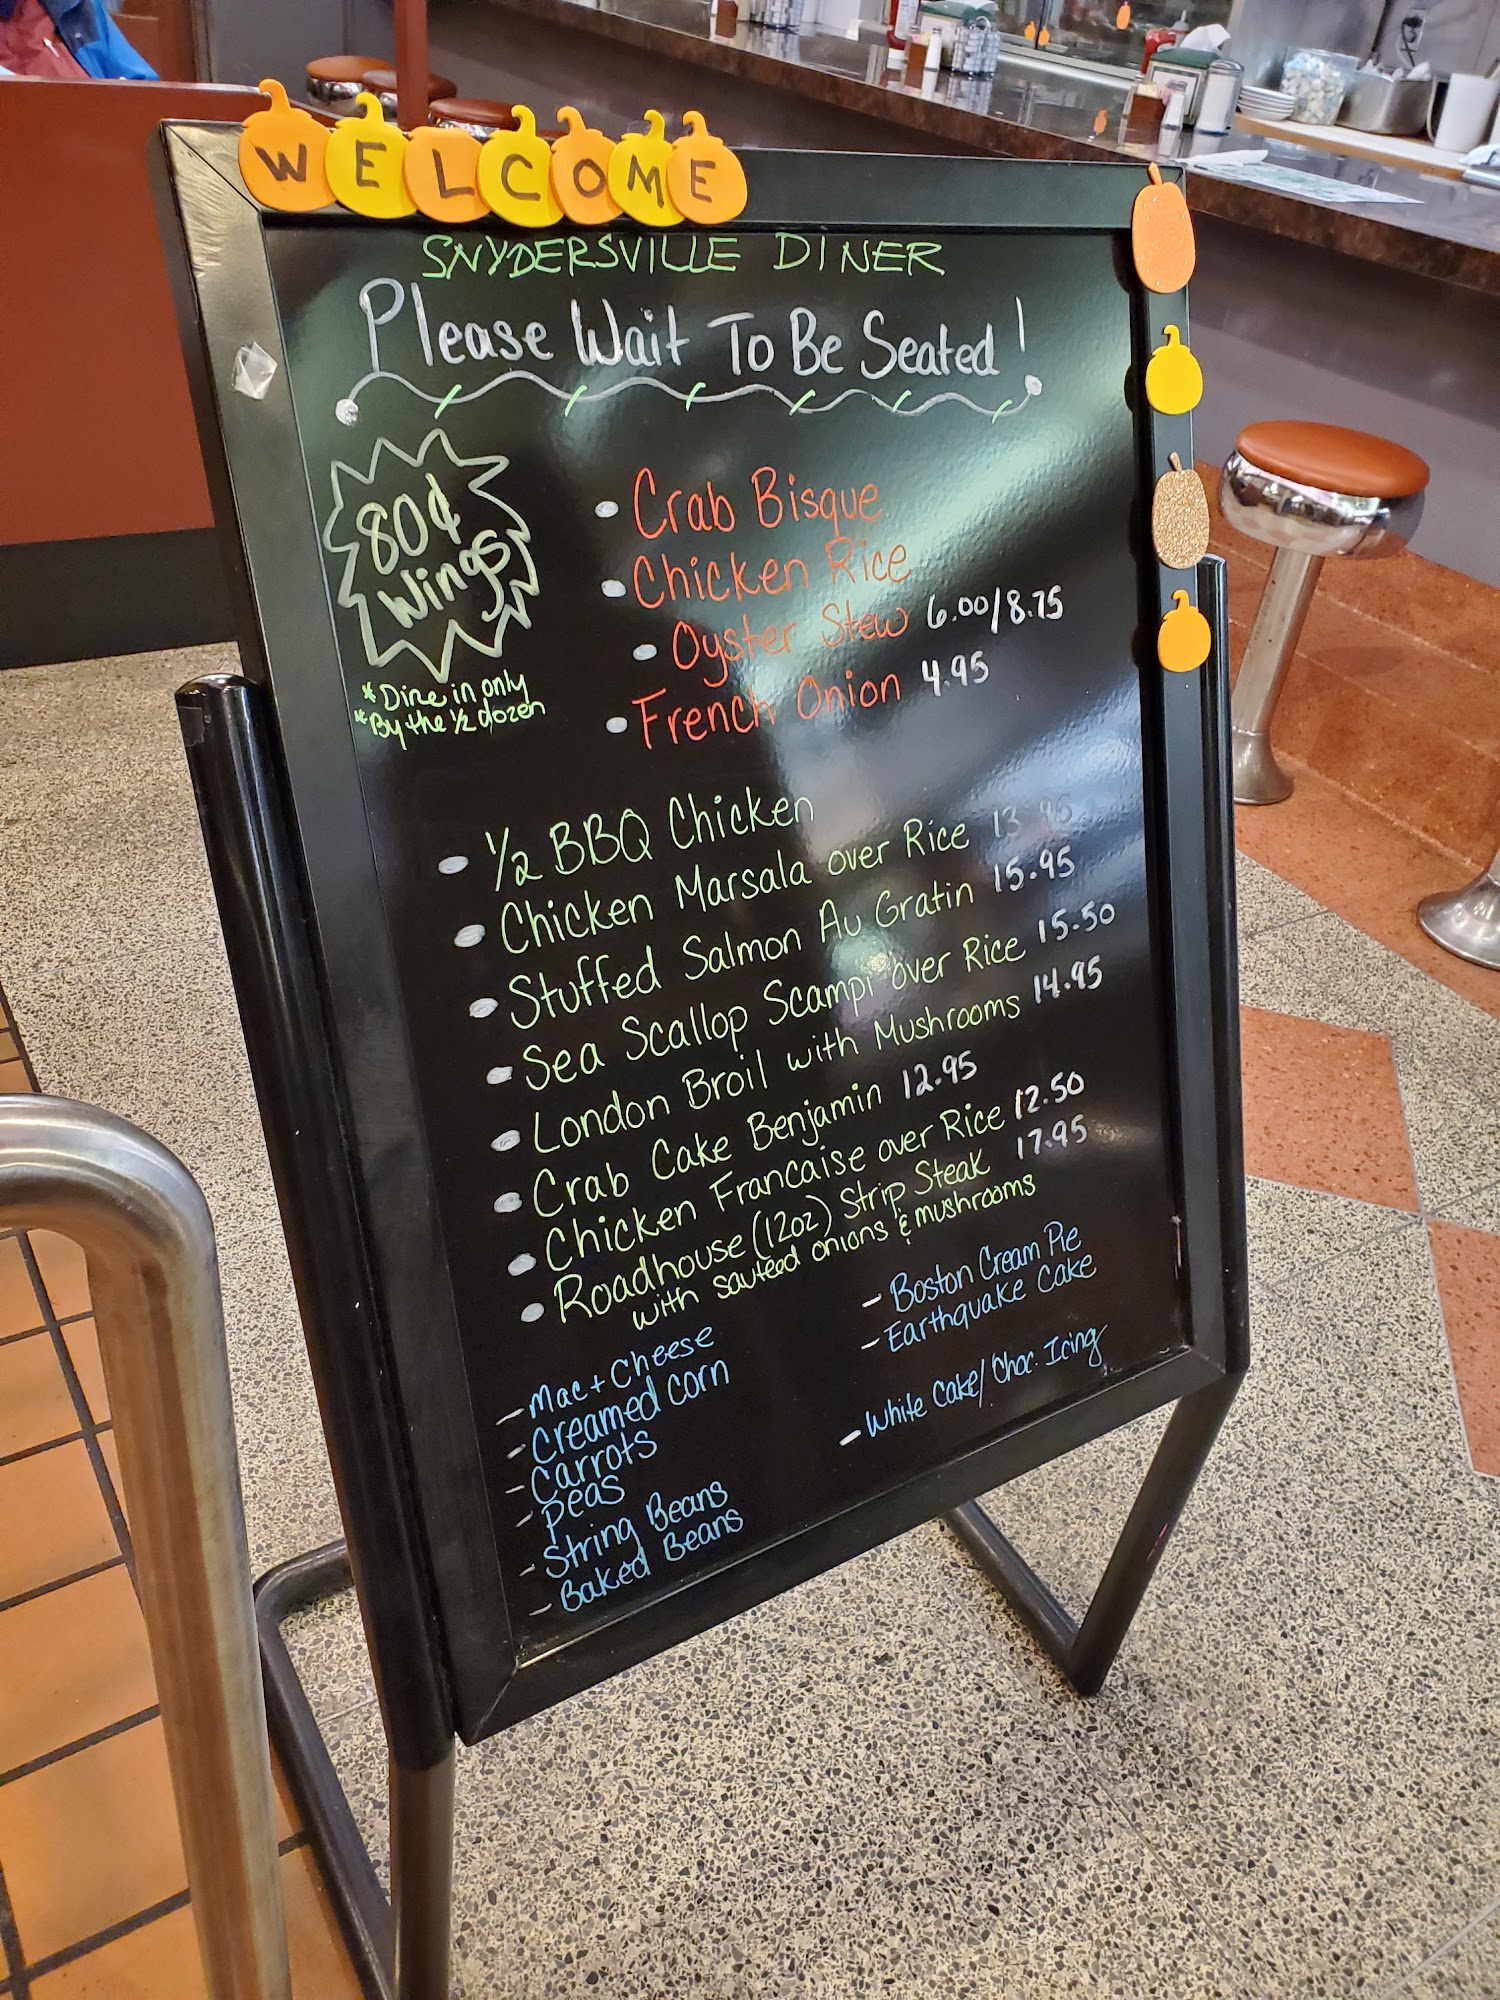 WELCOME
SNYDERSVILLE DINER
Please Wait To Be Seated!
80¢
Wings
*Dine in only
*By the 1/2 dozen
• Crab Bisque
• Chicken Rice
• Oyster Stew 6.00/8.75
• French Onion 4.95
• 1/2 BBQ Chicken
• Chicken Marsala over Rice 13.95
• Stuffed Salmon Au Gratin 15.95
• Sea Scallop Scampi over Rice 15.50
• London Broil with Mushrooms 14.95
• Crab Cake Benjamin 12.95
• Chicken Francaise over Rice 12.50
• Roadhouse (12oz) Strip Steak 17.95
with sauteed onions & mushrooms
- Mac + Cheese
- Creamed Corn
- Carrots
- Peas
- String Beans
- Baked Beans
- Boston Cream Pie
- Earthquake Cake
- White Cake/Choc. Icing